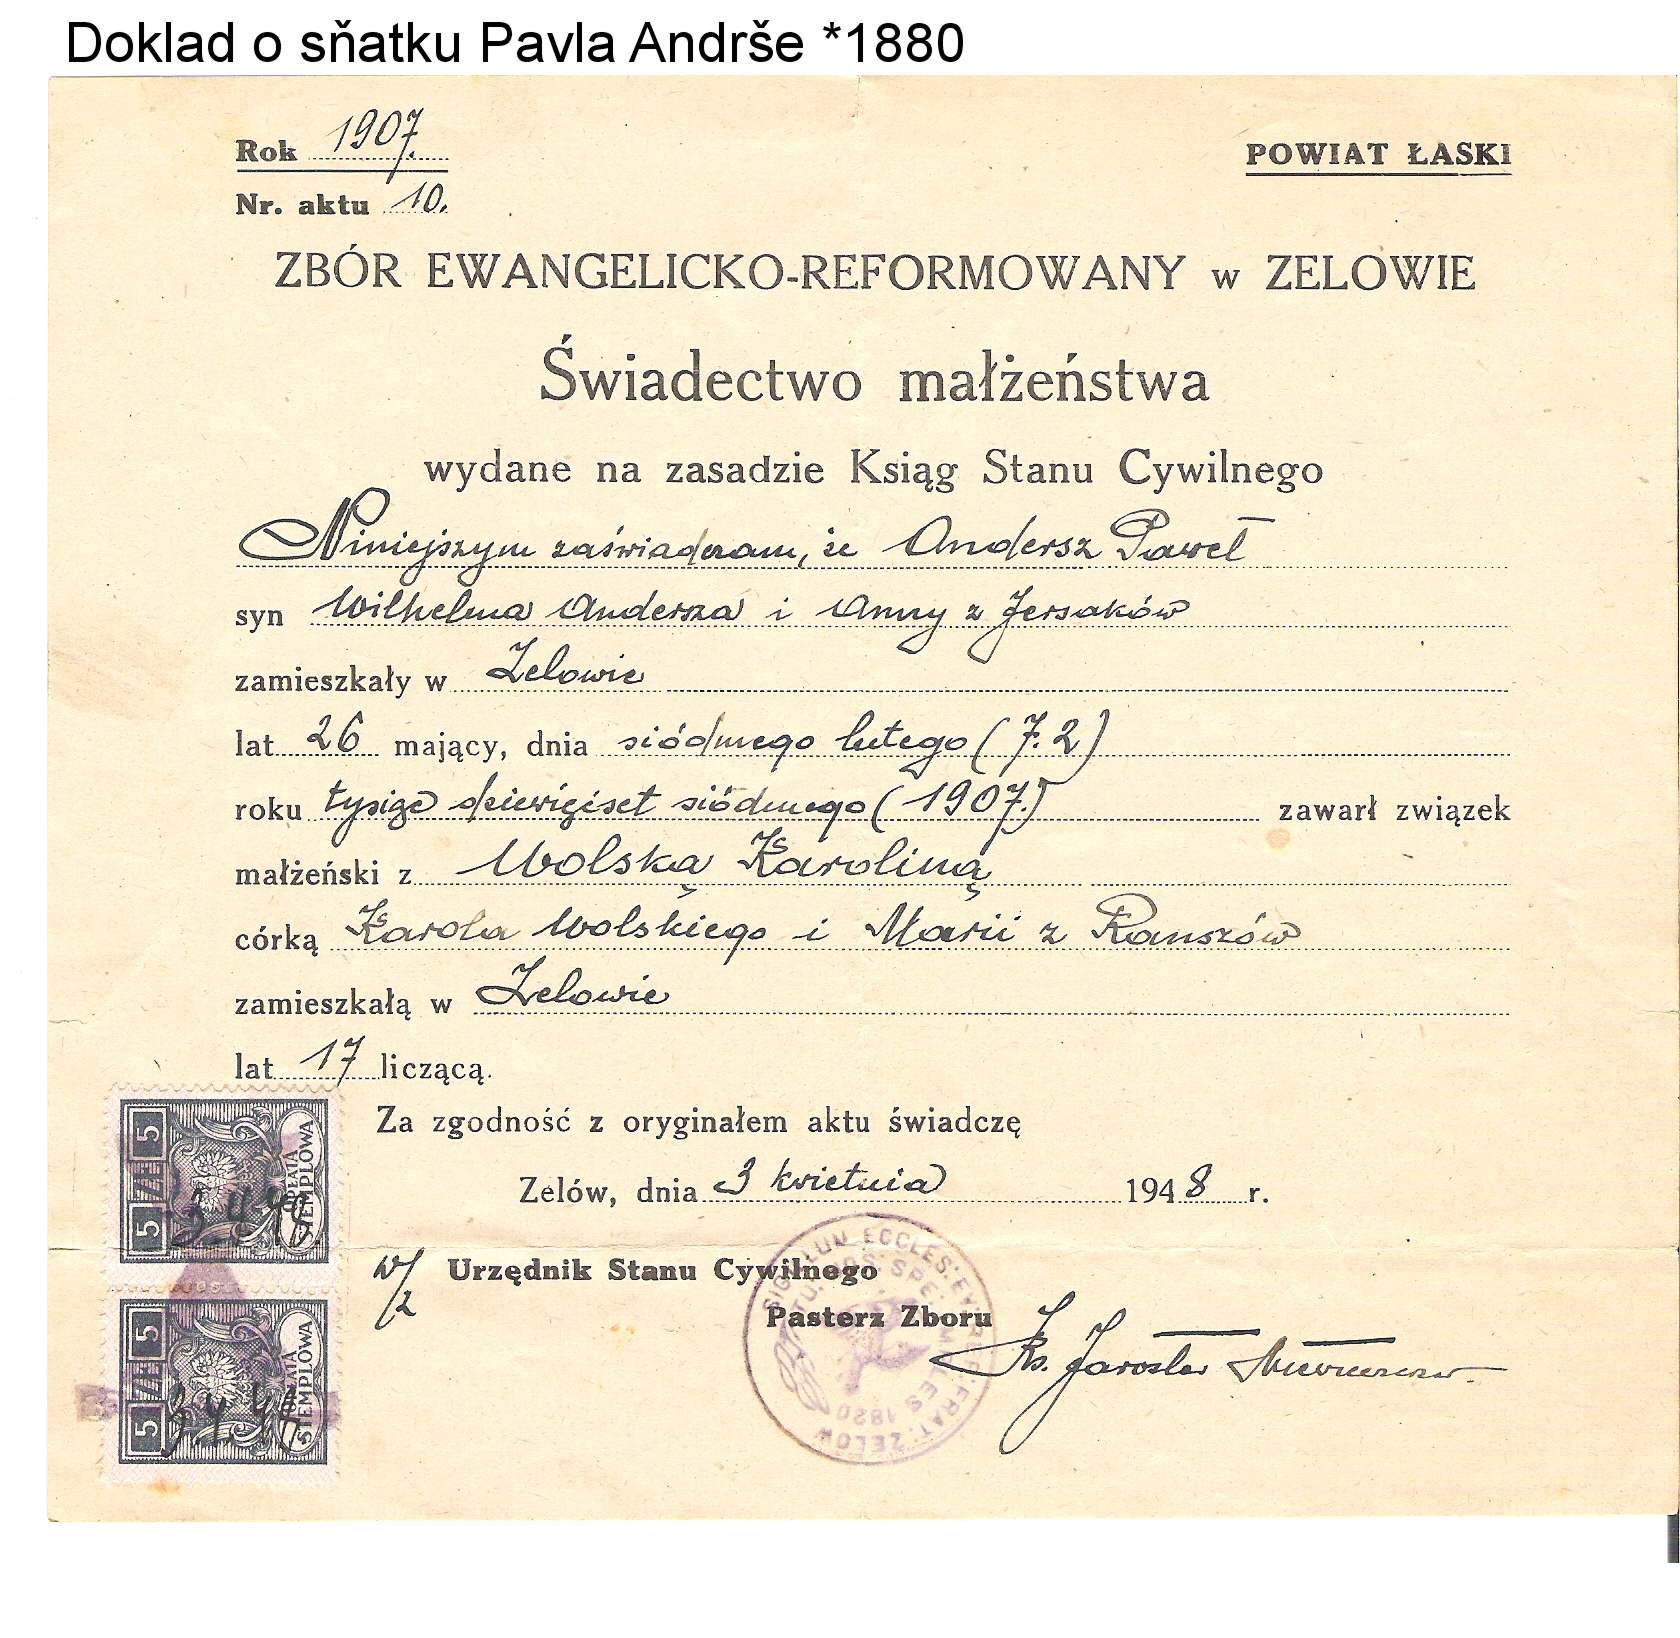 Doklad o sňatku Pavla Andrše *1880
Rok 1907.
POWIAT ŁASKI
Nr. aktu 10.
ZBÓR EWANGELICKO-REFORMOWANY w ZELOWIE
Świadectwo małżeństwa
wydane na zasadzie Ksiąg Stanu Cywilnego
Niniejszym zaświadczam, że Andersz Paweł
syn Wilhelma Andersza i Anny z Jersaków
zamieszkały w Zelowie
lat 26 mający, dnia siódmego lutego (7.2)
roku tysiąc dziewięćset siódmego (1907.) zawarł związek
małżeński z Wolską Karoliną
córką Karola Wolskiego i Marii z Ranszów
zamieszkałą w Zelowie
lat 17 licząca.
Za zgodność z oryginałem aktu świadczę
Zelów, dnia 3 kwietnia 1948 r.
w/z Urzędnik Stanu Cywilnego
Pasterz Zboru
Ks. Jarosław
5 ZŁ 5
OPŁATA STEMPLOWA
3.4.48
5 ZŁ 5
OPŁATA STEMPLOWA
3.4.48
SIGILLUM ECCLES: EV. REF. FRAT: ZELOW
SPE 1820